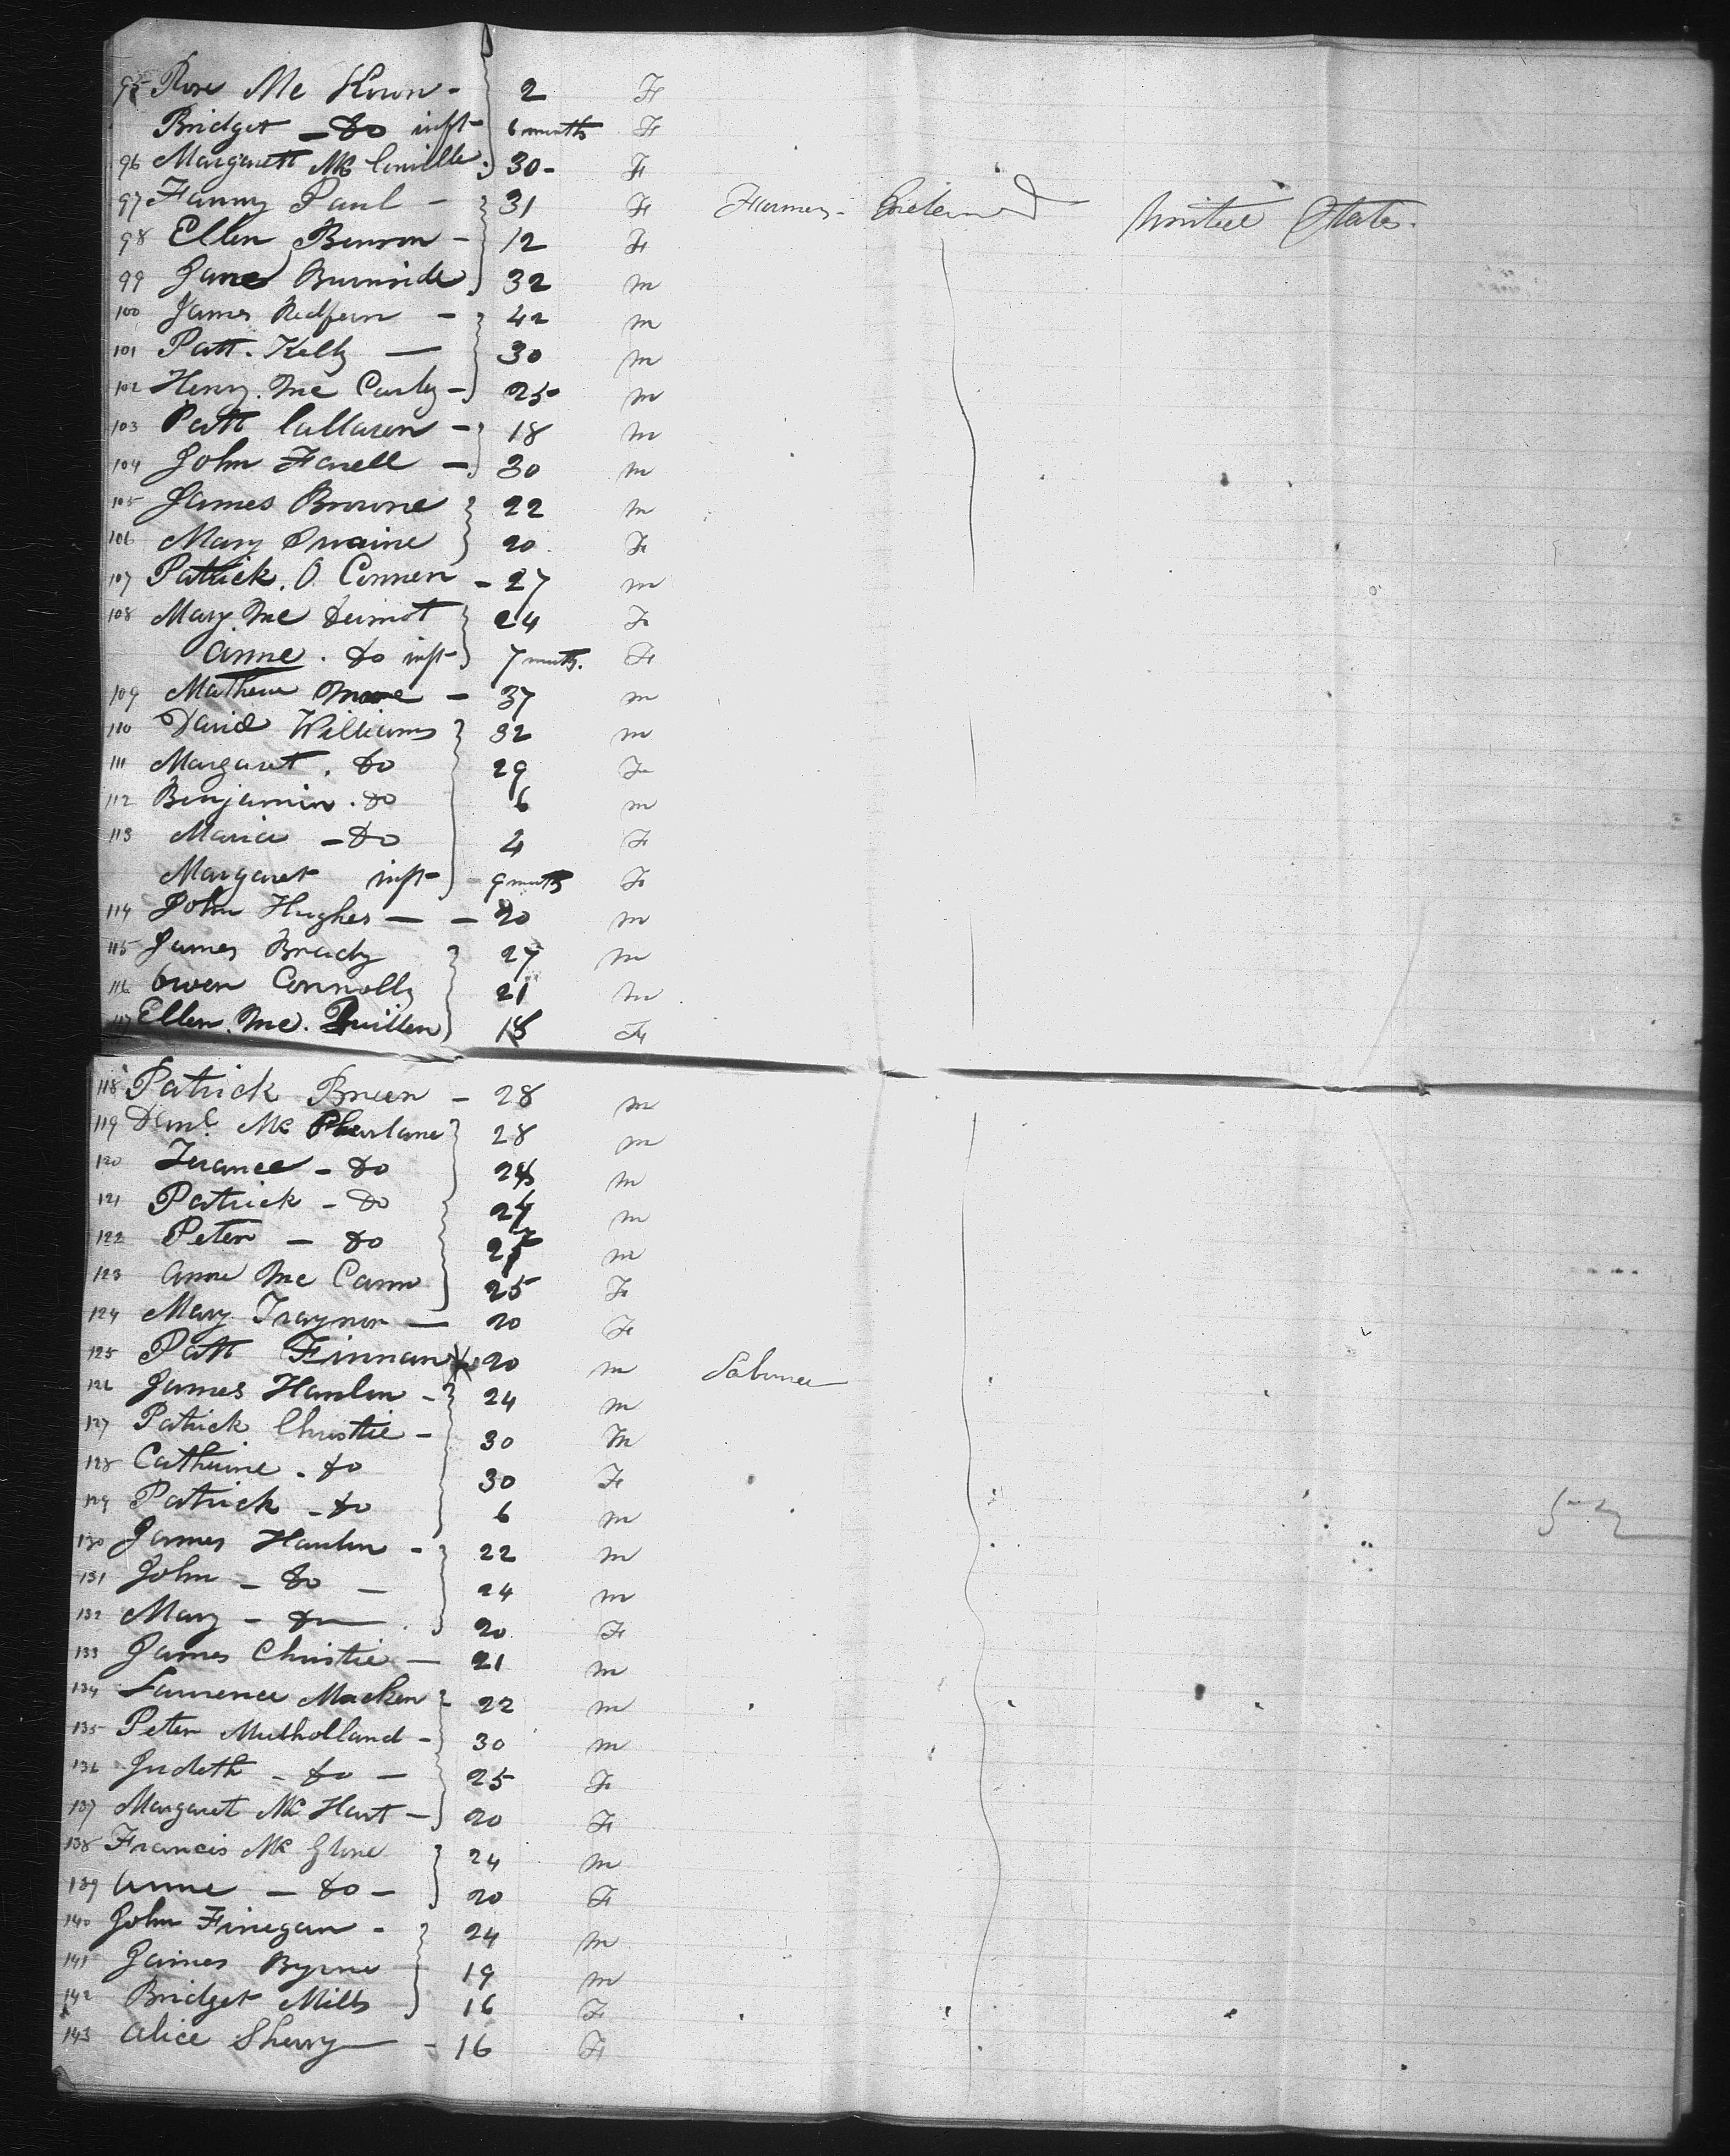 95 Rose Mc Kown - 2 F
Bridget - do inft 6 months F
96 Margarett Mc Conville 30 - F
97 Fanny Paul - 31 F Farmer - Ireland United States.
98 Ellen Benson - 12 F
99 James Burnside 32 m
100 James Redfern - 42 m
101 Patt. Kelly — 30 m
102 Henry. Mc Carley - 25 m
103 Patt Callaren - 18 m
104 John Farell - 30 m
105 James Browne 22 m
106 Mary Swaine 20 F
107 Patrick. O Conner - 27 m
108 Mary Mc Dermot 24 F
Anne. do inft 7 mnths. F
109 Mathew - 37 m
110 David Williams 32 m
111 Margaret. do 29 F
112 Benjamin. do 6 m
113 Maria - do 4 F
Margaret inft 9 mnths F
114 John Hughes — - 20 m
115 James Brady 27 m
116 Owen Connolly 21 m
117 Ellen. Mc. Quillen 18 F
118 Patrick Breen - 28 m
119 Danl. Mc Pharlane 28 m
120 Terance - do m
121 Patrick - do 24 m
122 Peter - do m
123 Anne Mc Cann 25 F
124 Mary Traynor — 20 F
125 Patt Finnan 20 m Labourer
126 James Hanlon - 24 m
127 Patrick Christie - 30 m
128 Catherine. do 30 F
129 Patrick - do 6 m
130 James Hanlon - 22 m
131 John - do - 24 m
132 Mary - do 20 F
133 James Christie - 21 m
134 Laurence Macken 22 m
135 Peter Mulholland - 30 m
136 Judeth - do - 25 F
137 Margaret Mc Hart - 20 F
138 Francis Mc Glone 24 m
139 Anne - do - 20 F
140 John Finegan - 24 m
141 James Byrne 19 m
142 Bridget Mills 16 F
143 Alice Sherry - 16 F